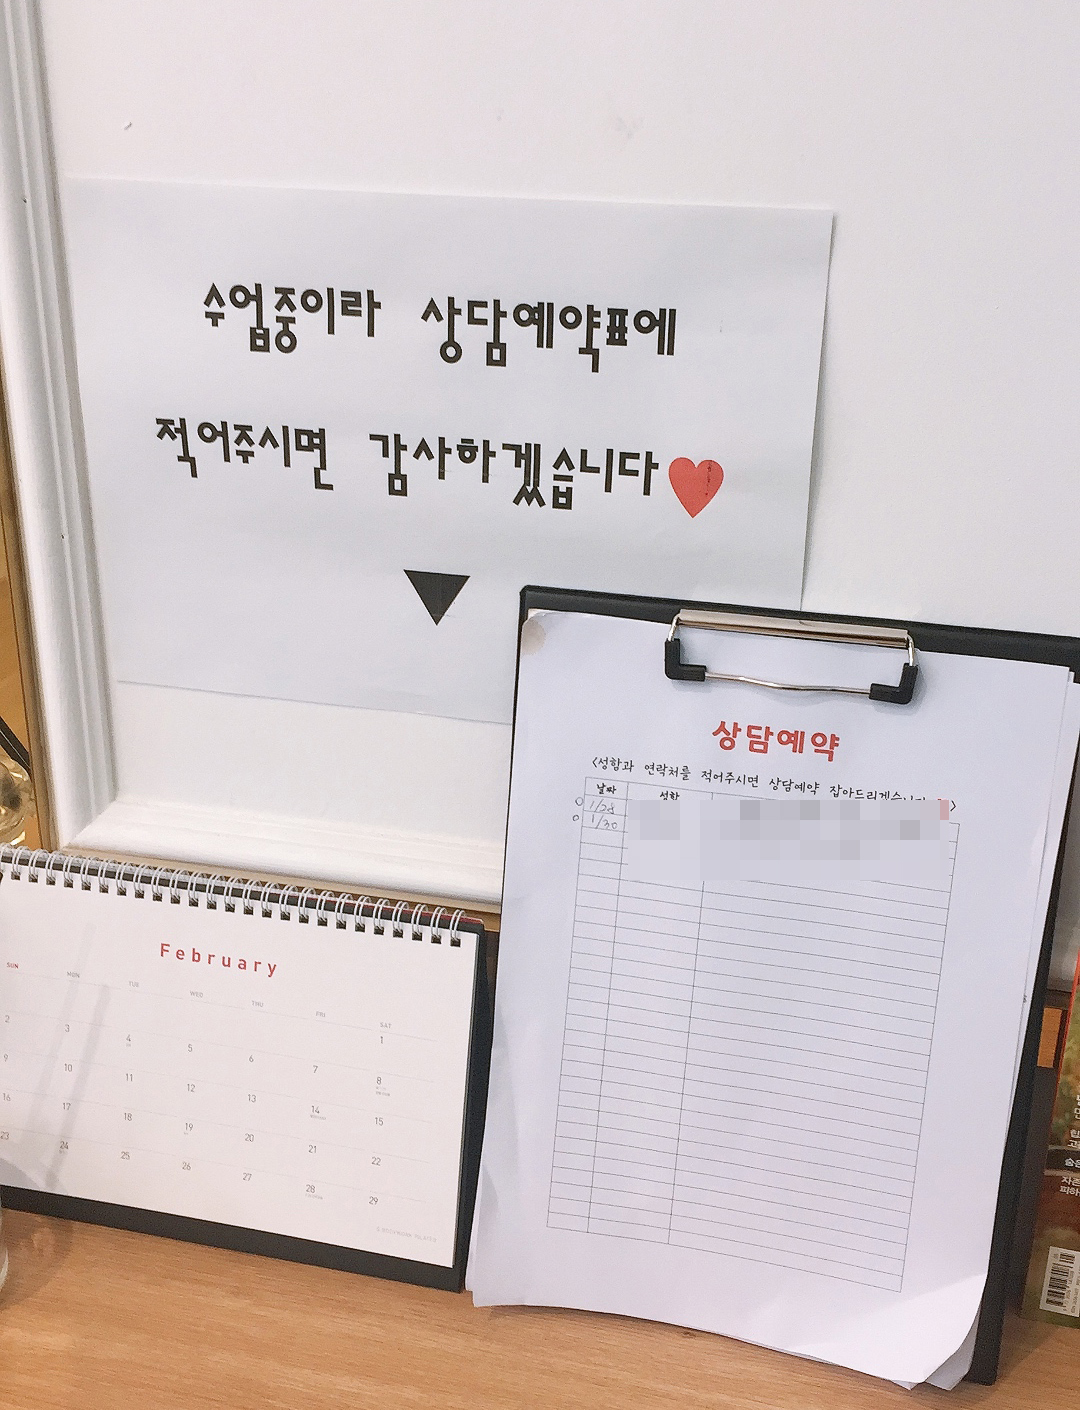 수업중이라 상담예약표에
적어주시면 감사하겠습니다
상담예약
<성함과 연락처를 적어주시면 상담예약 잡아드리겠습니다
날짜 성함
1/28
1/30
February
SUN MON TUE WED THU FRI SAT
1
2 3 4 5 6 7 8
9 10 11 12 13 14 15
16 17 18 19 20 21 22
23 24 25 26 27 28 29